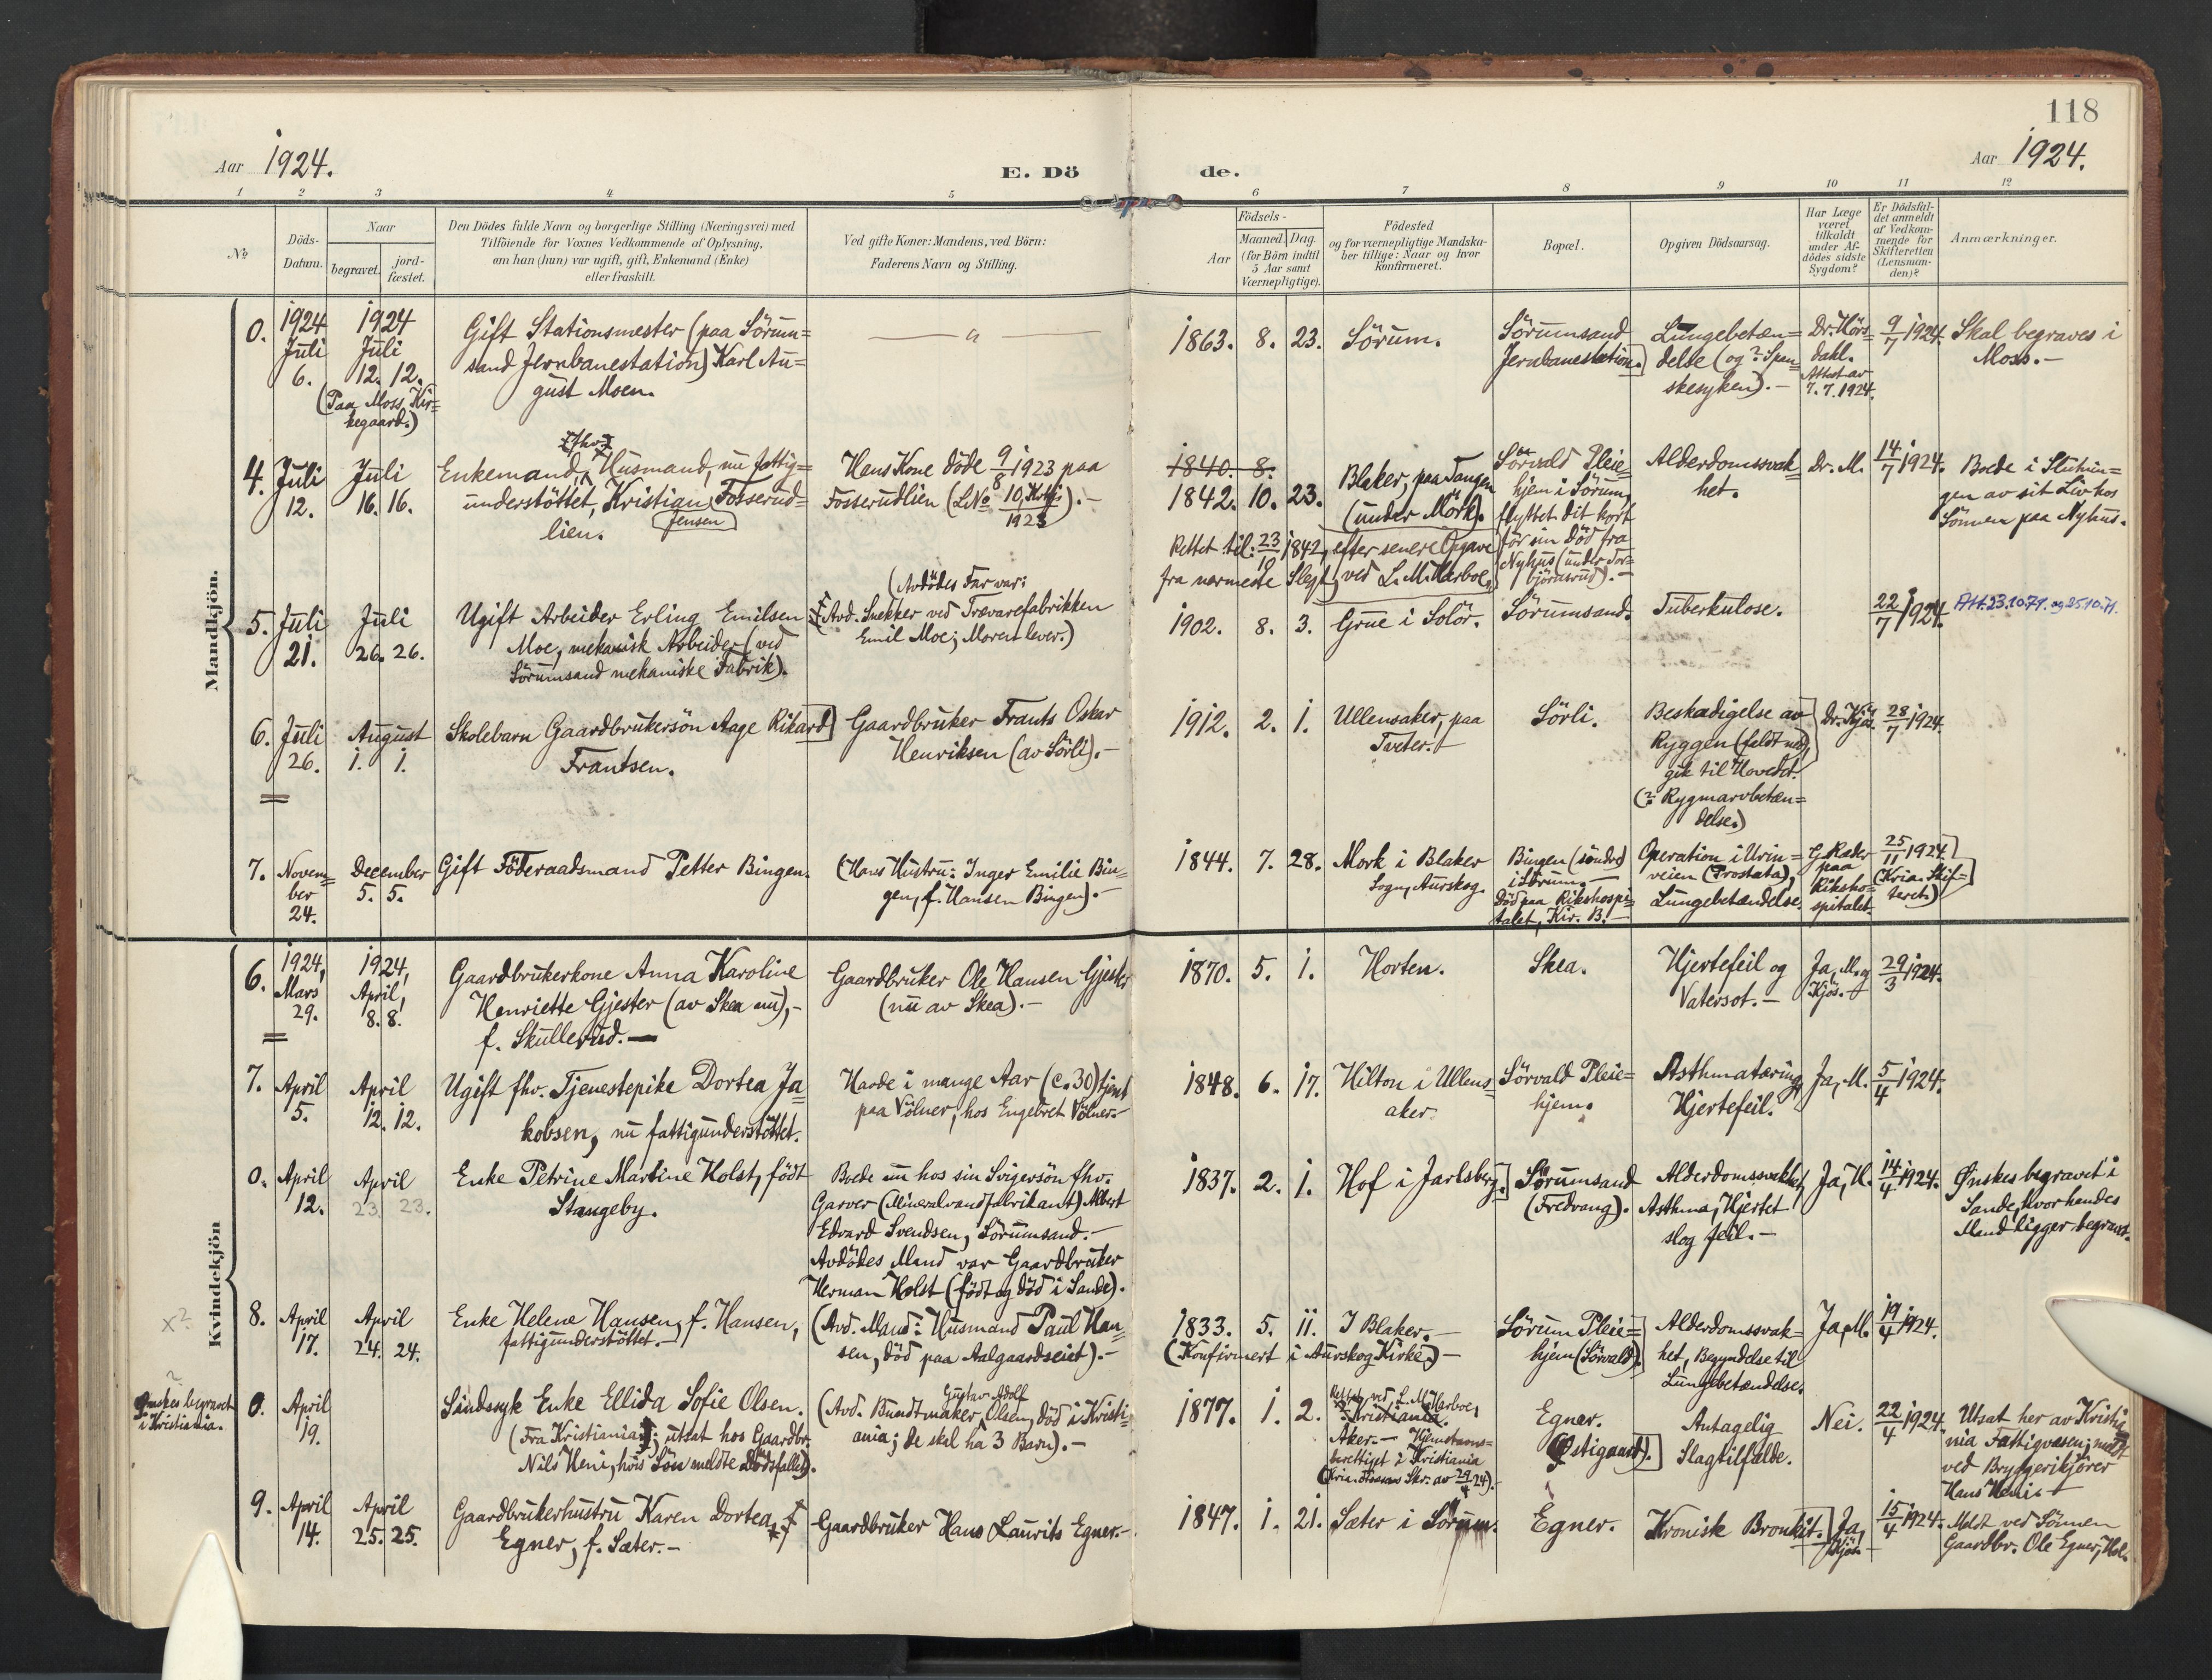 118
Aar 1924.
E. Dö
de.
Aar 1924.
1 2 3 4 5 6 7 8 9 10 11 12
No
Döds-
Datum.
Naar
begravet.
jord-
fæstet.
Den Dödes fulde Navn og borgerlige Stilling (Næringsvei) med
Tilföiende for Voxnes Vedkommende af Oplysning,
om han (hun) var ugift, gift, Enkemand (Enke)
eller fraskilt.
Ved gifte Koner: Mandens, ved Börn:
Faderens Navn og Stilling.
Födsels-
Aar
Maaned. Dag.
(for Börn indtil
5 Aar samt
Værnepligtige).
Födested
og for værnepligtige Mandska-
ber tillige: Naar og hvor
konfirmeret.
Bopæl.
Opgiven Dödsaarsag.
Har Læge
været
tilkaldt
under Af-
dödes sidste
Sygdom?
Er Dödsfal-
det anmeldt
af Vedkom-
mende for
Skifteretten
(Lensman-
den)?
Anmærkninger.
Mandkjön.
0.
1924
Juli
6.
1924
Juli
12. 12.
(Paa Moss Kir=
kegaard.)
Gift Stationsmester (paa Sörum=
sand Jernbanestation) Karl Au=
gust Moen.
— " —
1863. 8. 23.
Sörum.
Sörumsand
Jernbanestation.
Lungebetæn=
delse (og ? Span=
skesyken). —
Dr. Hörs=
dahl.
Attest av
7. 7. 1924.
9/7 1924.
Skal begraves i
Moss. —
4.
Juli
12.
Juli
16. 16.
fhv.
Enkemand, Husmand, nu fattig=
understöttet, Kristian Fosserud=
Jensen
lien.
Hans Kone döde 9/8 1923 paa
Fosserudlien (LNo 10, Kvkj. 1923). —
1840. 8.
1842. 10. 23.
Blaker, paa Tangen
(under Mörk).
Rettet til: 23/10 1842, efter senere Opgave
fra nærmeste Slegt, ved L. M. Harboe.
Sörvald Pleie=
hjem i Sörum,
flyttet dit kort
för sin Död fra
Nyhus (under Tor=
björnsrud). —
Alderdomssvak=
het.
Dr. M.
14/7 1924.
Boede i Slutnin=
gen av sit Liv hos
Sönnen paa Nyhus.
5.
Juli
21.
Juli
26. 26.
Ugift Arbeider Erling Emilsen
Moe, mekanisk Arbeider (ved
Sörumsand mekaniske Fabrik).
(Avdödes Far var:
Avd. Snekker ved Trævarefabrikken
Emil Moe; Moren lever.)
1902. 8. 3.
Grue i Solör.
Sörumsand.
Tuberkulose.
22/7 1924.
Att. 23.10.71. og 25.10.71.
6.
Juli
26.
August
1. 1.
Skolebarn Gaardbrukersön Aage Rikard
Frantsen.
Gaardbruker Frants Oskar
Henriksen (av Sörli). —
1912. 2. 1.
Ullensaker, paa
Tveter. —
Sörli.
Beskadigelse av
Ryggen (faldt ned),
gik til Hovedet.
(? Rygmarvbetæn=
delse.)
Dr. Kjös.
28/7 1924.
7.
Novem=
ber
24.
December
5. 5.
Gift Föderaadsmand Petter Bingen.
(Hans Hustru: Inger Emilie Bin=
gen, f. Hansen Bingen). —
1844. 7. 28.
Mork i Blaker
Sogn, Aurskog.
Bingen (söndre)
i Sörum. —
Död paa Rikshospi=
talet, Kir. B. —
Operation i Urin=
veien (Prostata),
Lungebetændelse.
paa
Riksho=
spitalet.
25/11 1924
(Kria. Skif=
teret.)
Kvindekjön
6.
1924,
Mars
29.
1924,
April,
8. 8.
Gaardbrukerkone Anna Karoline
Henriette Gjester (av Skea nu), —
f. Skullerud. —
Gaardbruker Ole Hansen Gjester
(nu av Skea). —
1870. 5. 1.
Horten.
Skea.
Hjertefeil og
Vatersot. —
Ja, M. og
Kjös. —
29/3 1924.
7.
April
5.
April
12. 12.
Ugift fhv. Tjenestepike Dortea Ja=
kobsen, nu fattigunderstöttet.
Havde i mange Aar (c. 30) tjent
paa Völner, hos Engebret Völner. —
1848. 6. 17.
Hilton i Ullens=
aker.
Sörvald Pleie=
hjem.
Asthmatæring,
Hjertefeil.
Ja, M.
5/4 1924.
0.
April
12.
April
23. 23.
Enke Petrine Martine Holst, född
Stangeby.
Boede nu hos sin Svigersön fhv.
Garver (Mineralvandfabrikant) Albert
Edvard Svendsen, Sörumsand. —
Avdödes Mand var Gaardbruker
Herman Holst (född og död i Sande).
1837. 2. 1.
Hof i Jarlsberg.
Sörumsand
(Fredvang).
Alderdomssvakhet,
Asthma, Hjertet
slog feil. —
Ja, H.
14/4 1924.
Önskes begravet i
Sande, hvor hendes
Mand ligger begravet.
x?
8.
April
17.
April
24. 24.
Enke Helene Hansen, f. Hansen,
fattigunderstöttet. —
(Avd. Mand: Husmand Paul Han=
sen, död paa Aalgaardseiet). —
1833. 5. 11.
I Blaker. —
(Konfirmert i Aurskog Kirke.) —
Sörum Pleie=
hjem (Sörvald).
Alderdomssvak=
het, Begyndelse til
Lungebetændelse.
Ja, M.
19/4 1924.
Önskes begravet
i Kristiania.
0.
April
19.
Sindssyk Enke Ellida Sofie Olsen.
(Fra Kristiania; utsat hos Gaardbr.
Nils Heni, hvis Sön meldte Dödsfallet).
Gustav Adolf
(Avd. Buntmaker Olsen, död i Kristi=
ania; de skal ha 3 Barn). —
1877. 1. 2.
Rettet ved L. M. Harboe,
? Kristiania.
Aker. — Hjemstavns=
berettiget i Kristiania
Egner.
(Östigaard).
Antagelig
Slagtilfælde.
Nei.
22/4 1924.
Utsat her av Kristia
nia Fattigvæsen; meldt
ved Bryggerikjörer
Hans Heni. —
9.
April
14.
April
25. 25.
Gaardbrukerhustru Karen Dortea
Egner, f. Sæter. —
Gaardbruker Hans Laurits Egner. —
1847. 1. 21.
Sæter i Sörum.
Egner.
Kronisk Bronkit.
Ja,
Kjös. —
15/4 1924.
Meldt ved Sönnen
Gaardbr. Ole Egner, Hol.